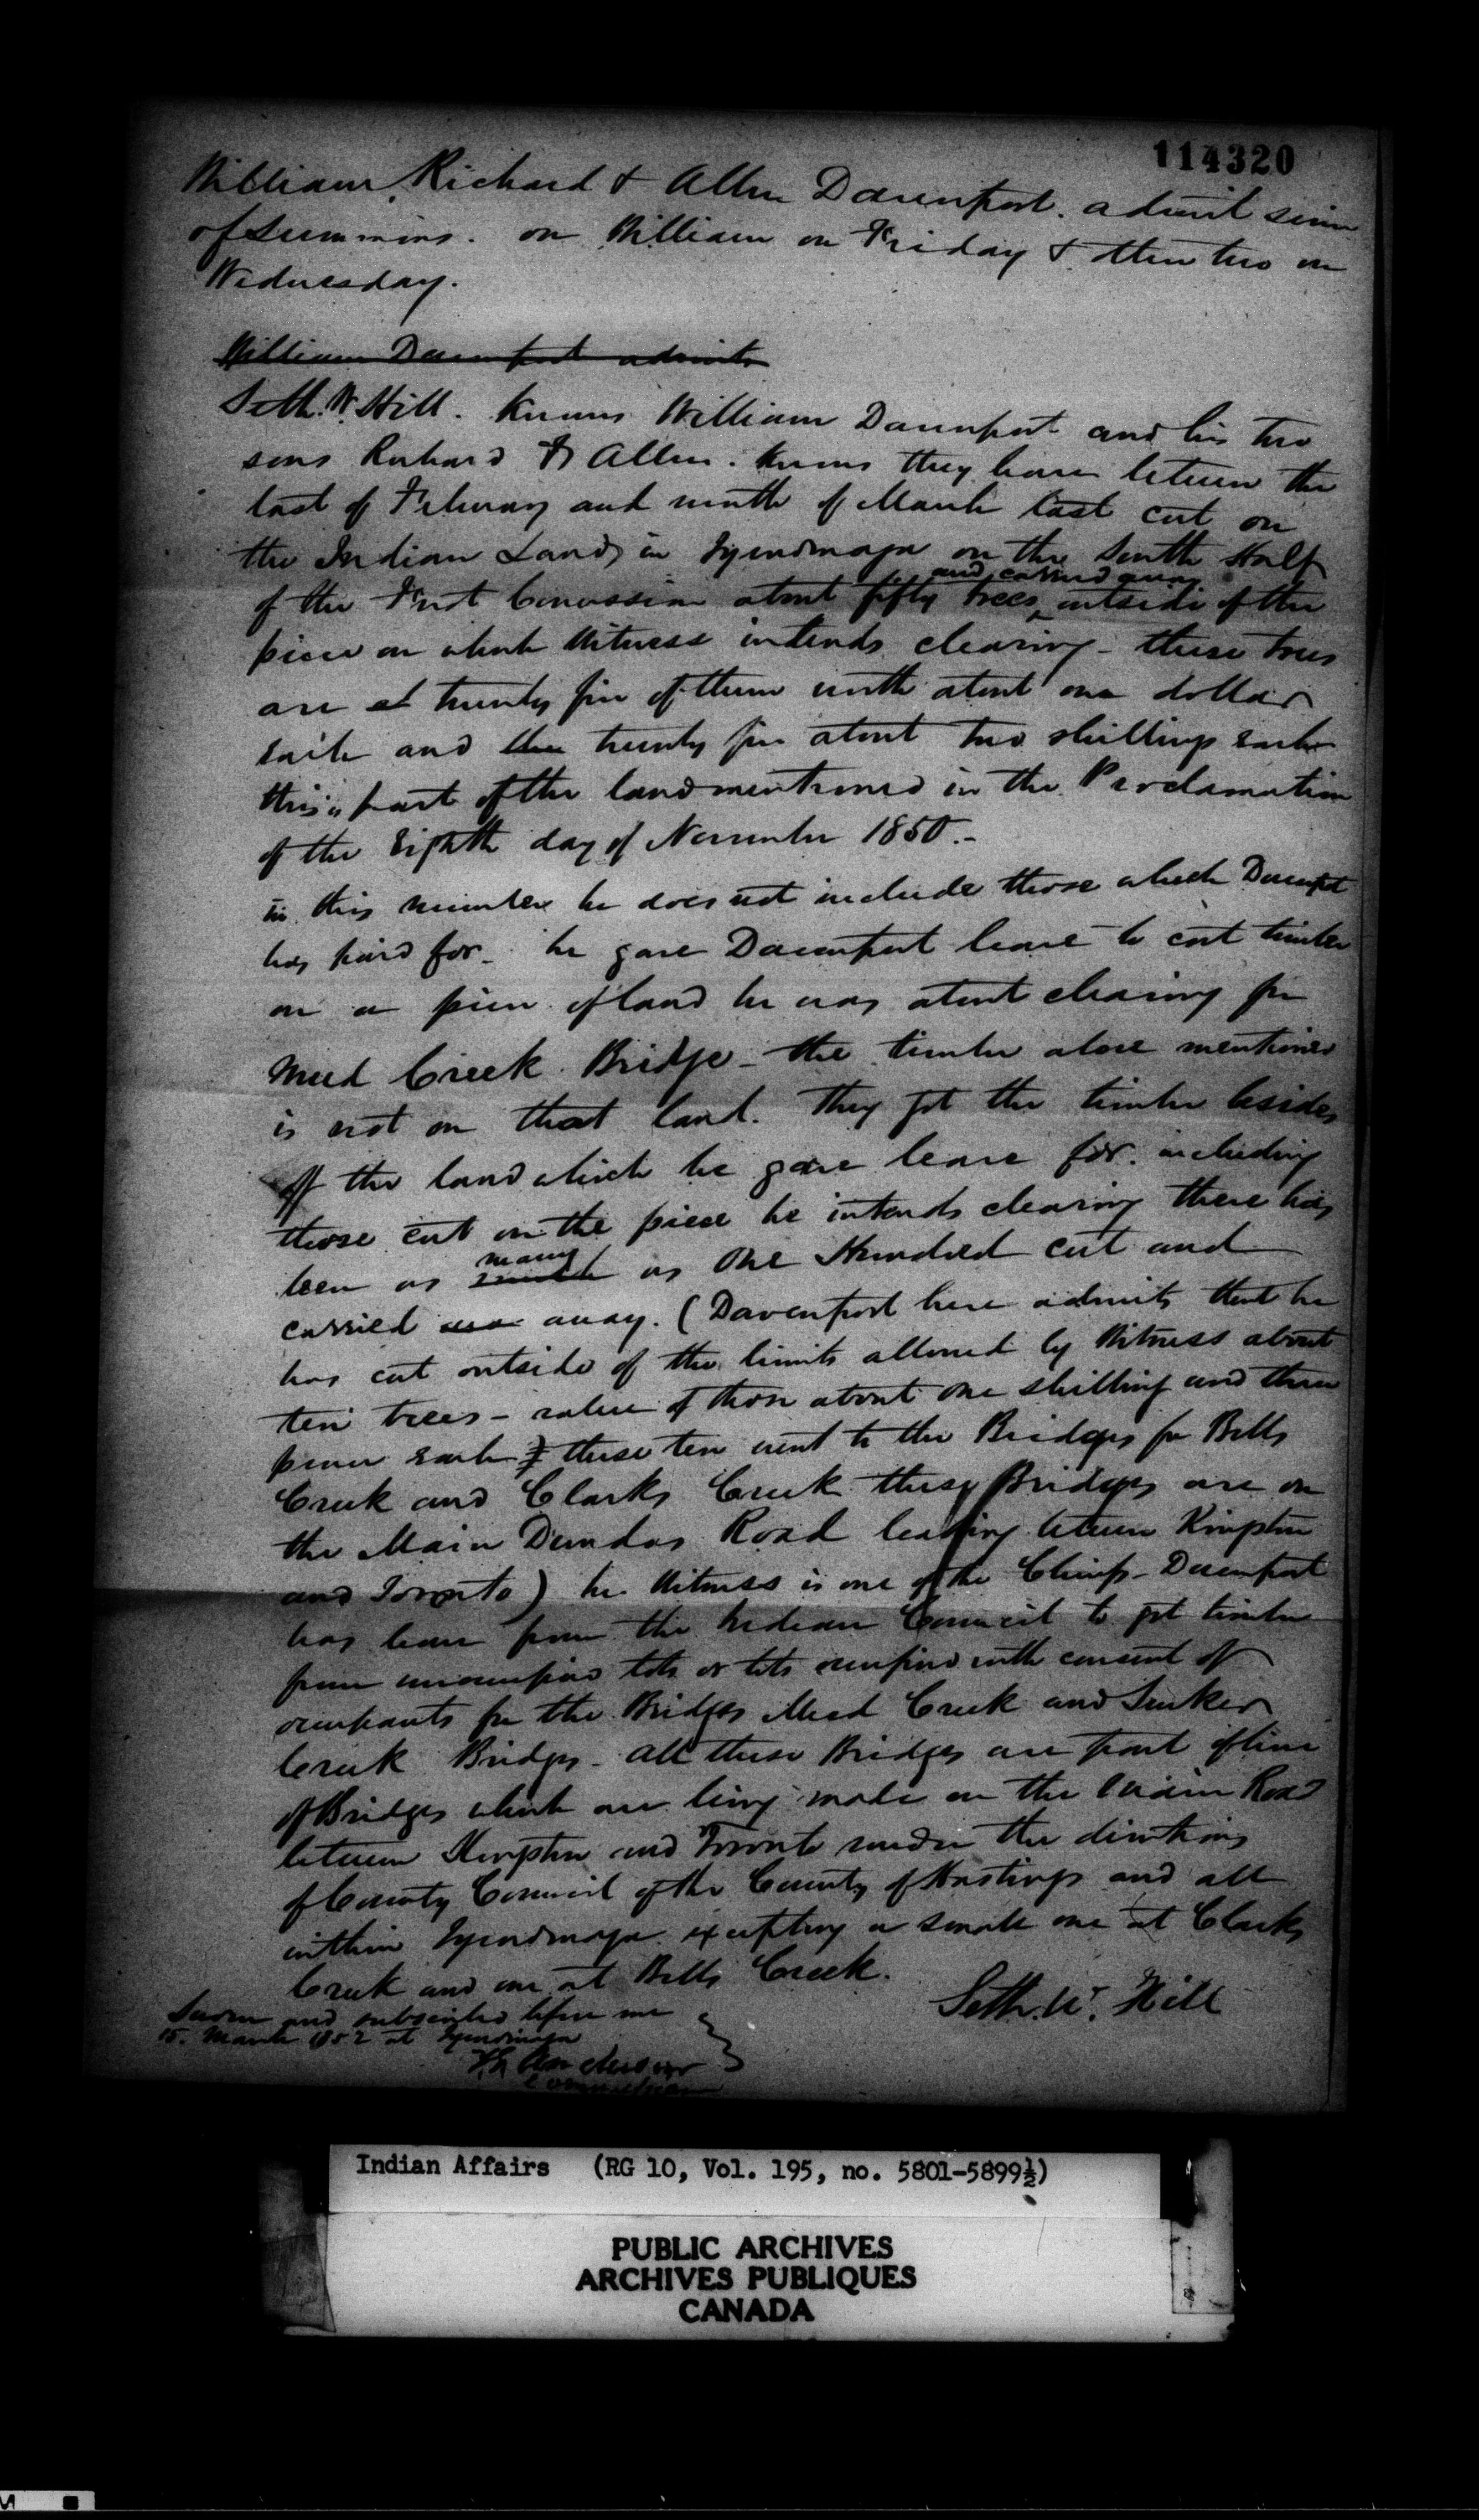 114320
William, Richard & Allen Davenport. admit
of Summons. on William on Friday & other two on
Wednesday.
William Davenport admits
Seth. W. Hill. Knows William Davenport and his two
sons Richard & Allen. Knows they have between the
last of February and ninth of March last cut on
the Indian Lands in Tyendinaga on the South Half
and carried away
of the First Concession about fifty trees outside of the
piece on which Witness intends clearing - these trees
are at twenty five of them worth about one dollar
each and twenty five about two shillings each
this is part of the land mentioned in the Proclamation
of the Eighth day of November 1850. -
in this number he does not include those which Davenport
has paid for - he gave Davenport leave to cut timber
on a piece of land he was about clearing for
Mud Creek Bridge - the timber above mentioned
is not on that land. They got the timber besides
off the land which he gave leave for. including
those cut on the piece he intends clearing there has
many
been as much as One Hundred cut and
carried away. (Davenport here admits that he
has cut outside of the limits allowed by Witness about
ten trees - value of those about one shilling and three
pence each & these ten went to the Bridges for Bells
Creek and Clarks Creek these Bridges are on
the Main Dundas Road leading between Kingston
and Toronto) he Witness is one of the Chiefs - Davenport
has leave from the Indian Council to get timber
from unoccupied lots or lots occupied with consent of
occupants for the Bridges Mud Creek and Sucker
Creek Bridges - All these Bridges are part of line
of Bridges which are being made on the Main Road
between Kingston and Toronto under the directions
of County Council of the County of Hastings and all
within Tyendinaga excepting a small one at Clarks
Creek and one at Bells Creek.
Seth. W. Hill
Sworn and subscribed before me
15. March 1852 at Tyendinaga
Anderson
Indian Affairs (RG 10, Vol. 195, no. 5801-5899½)
PUBLIC ARCHIVES
ARCHIVES PUBLIQUES
CANADA